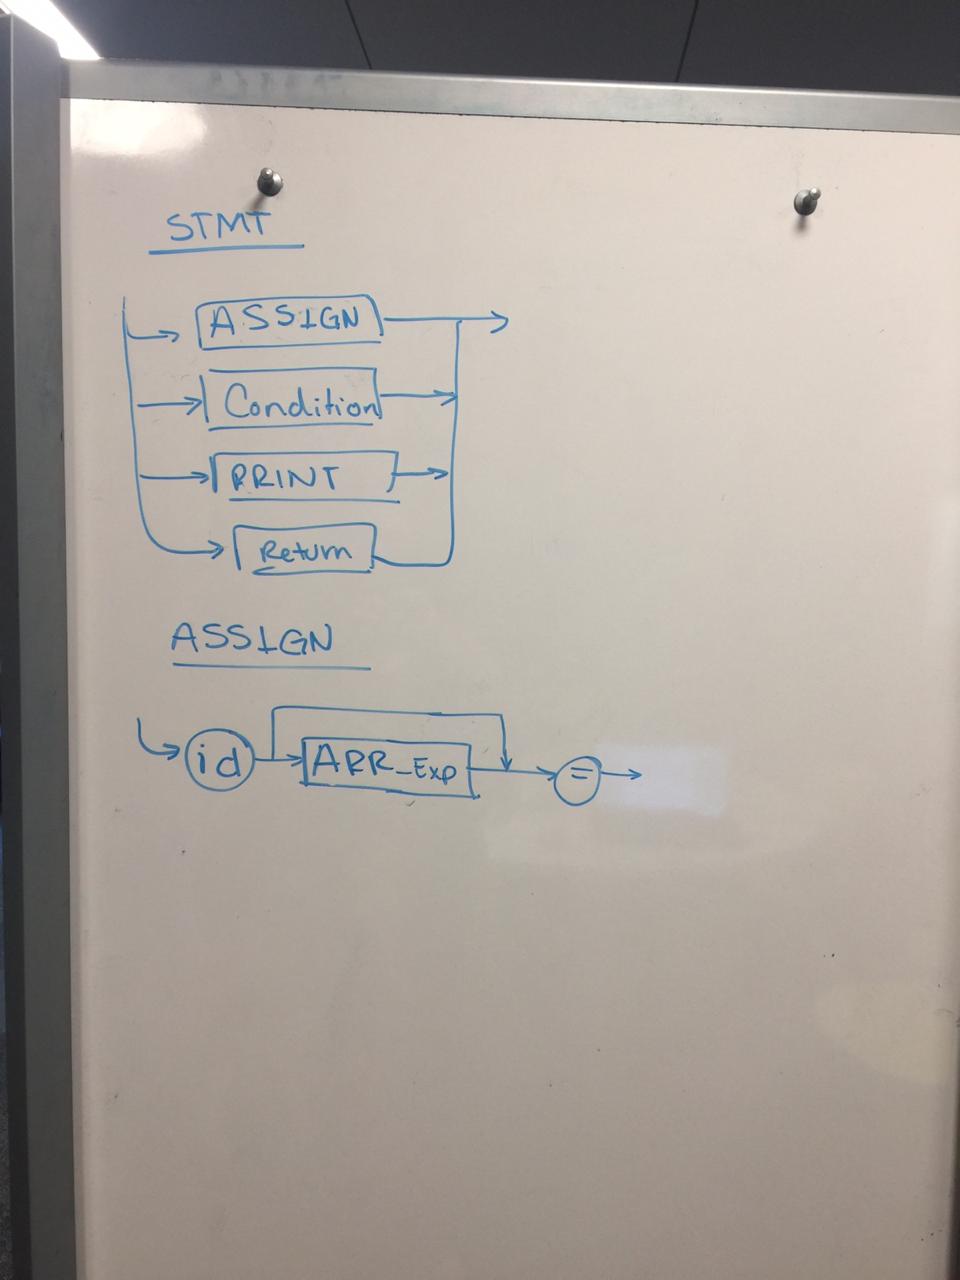 STMT
ASSIGN
Condition
PRINT
Return
ASSIGN
id ARR_Exp =